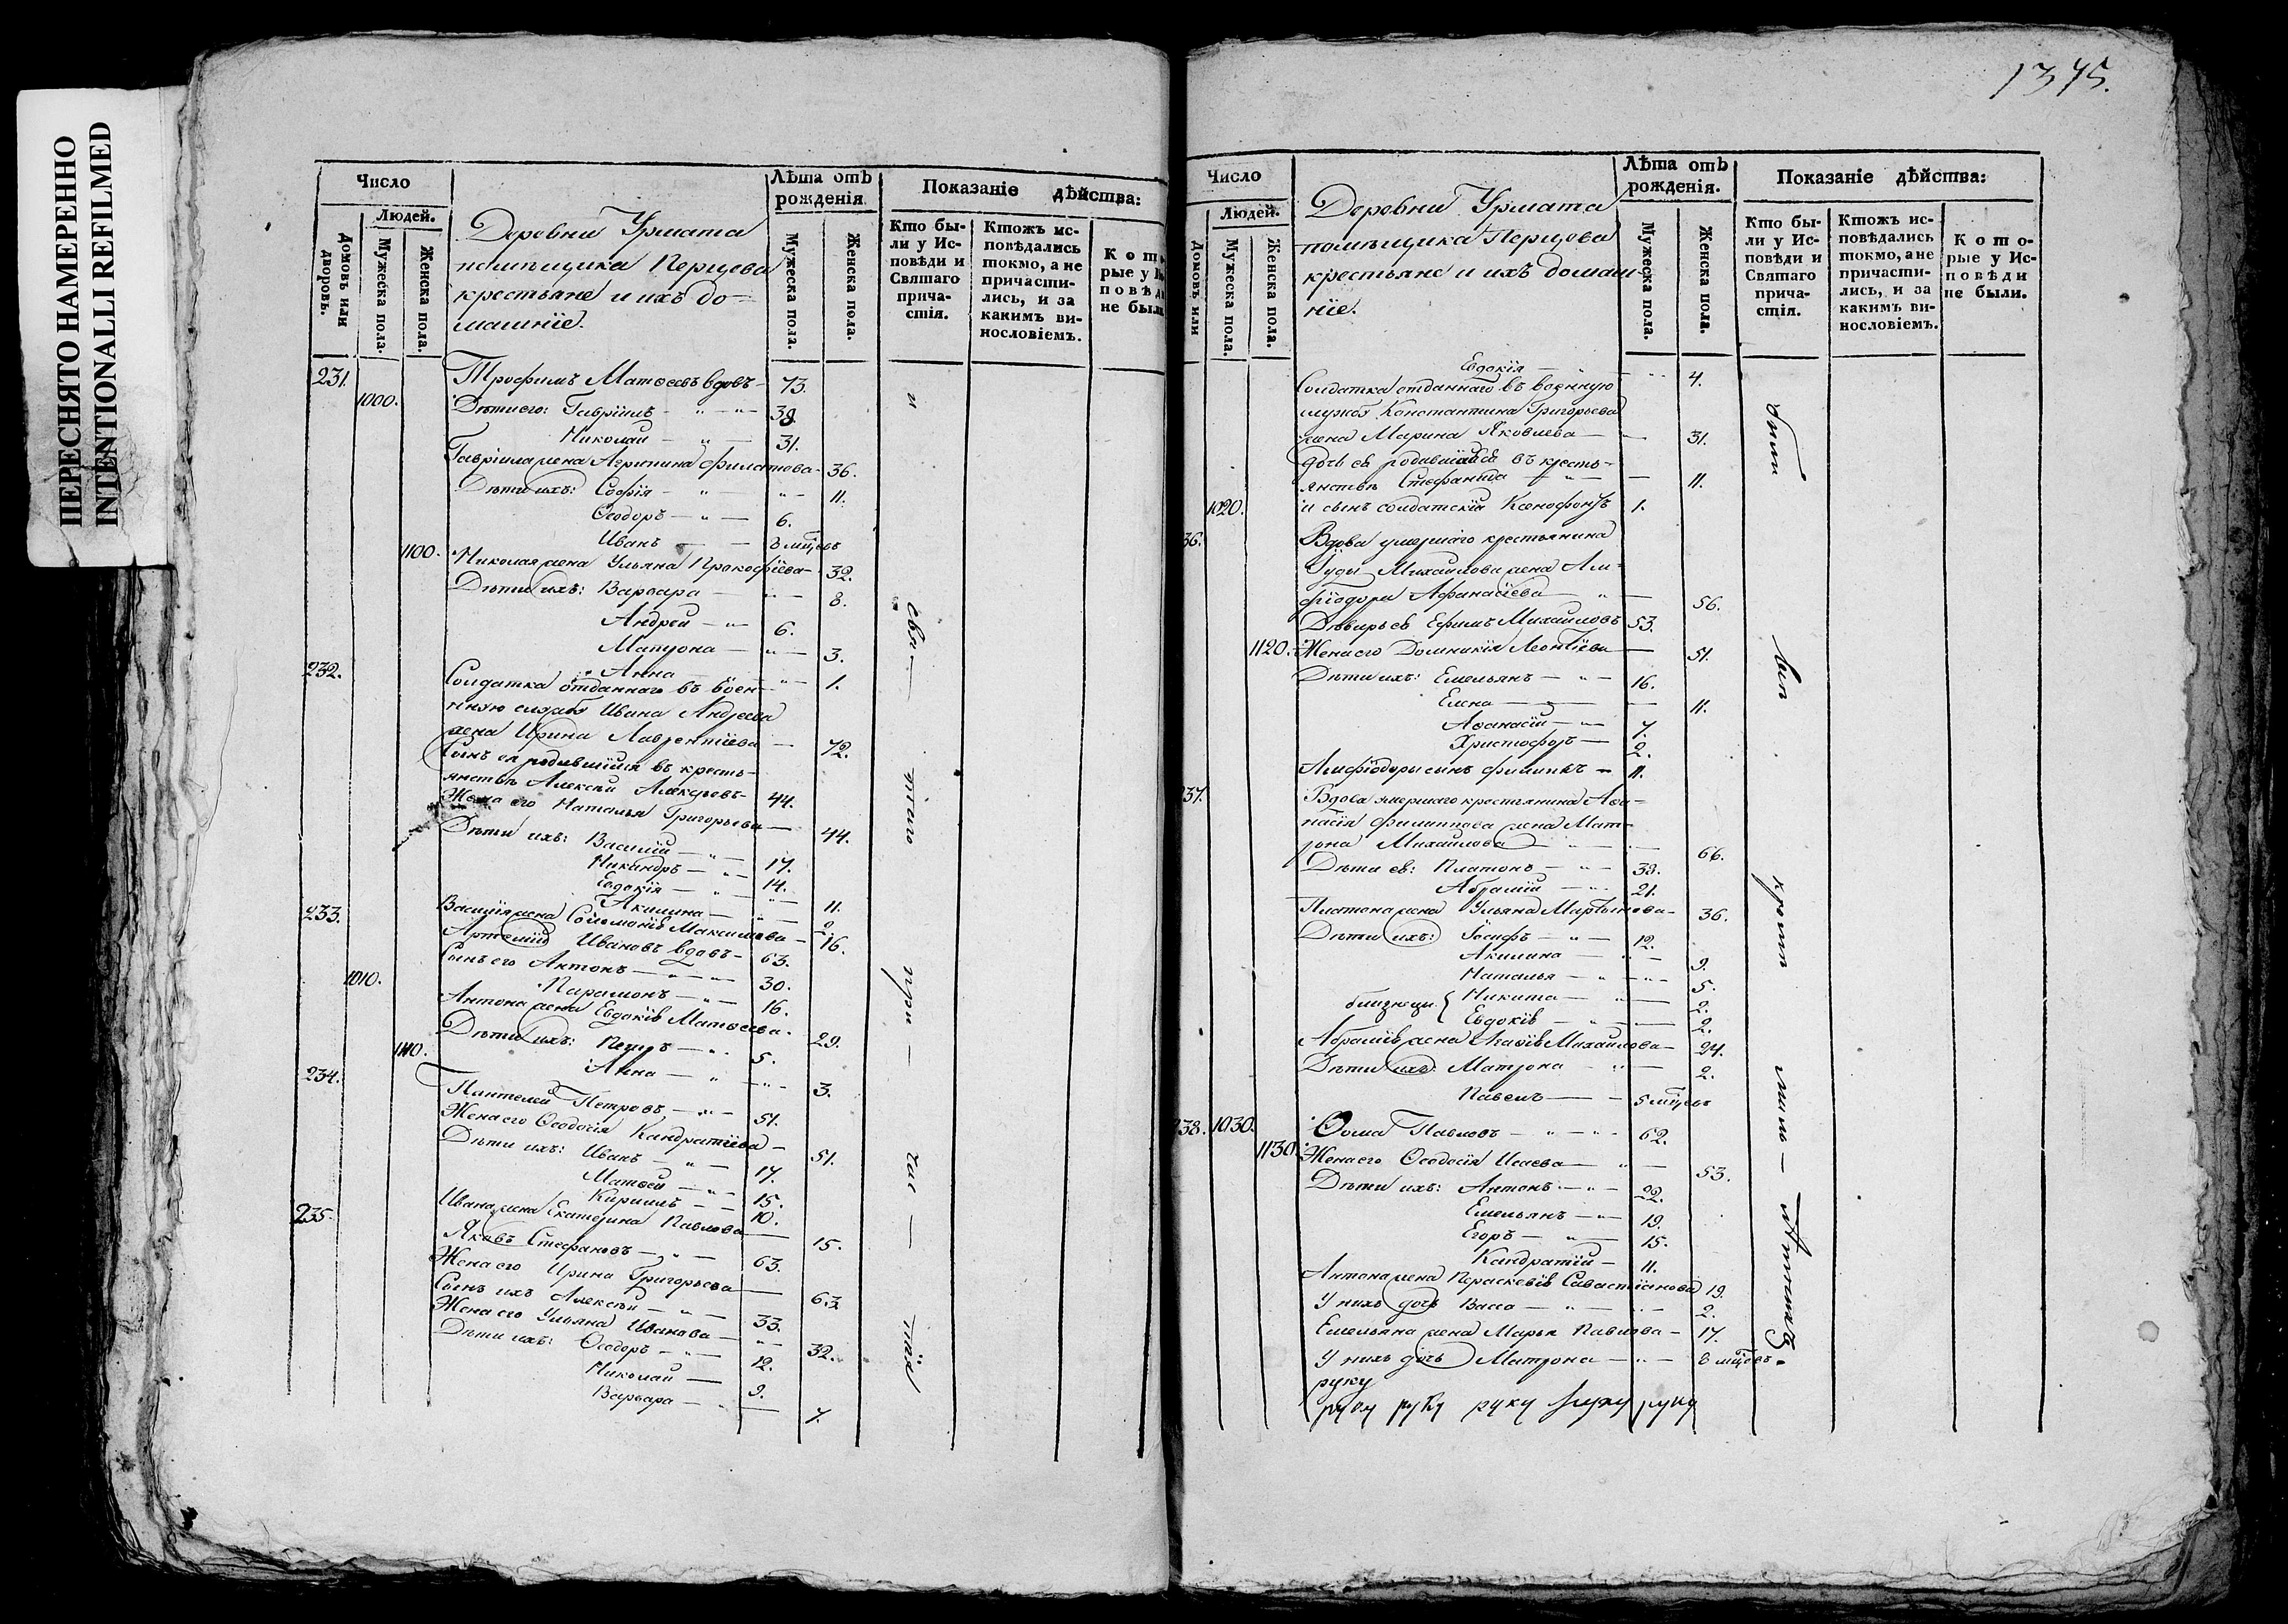 ПЕРЕСНЯТО НАМЕРЕННО
INTENTIONALLI REFILMED
Число
Людей.
Домовъ или дворовъ.
Мужеска пола.
Женска пола.
Деревни Урмата
помѣщика Перцова
крестьяне и ихъ до=
машніе.
Лѣта отъ рожденія.
Мужеска пола.
Женска пола.
Показаніе дѣйства:
Кто бы-
ли у Ис-
повѣди и
Святаго
прича-
стія.
Ктожъ ис-
повѣдались
токмо, а не
причасти-
лись, и за
какимъ ви-
нословіемъ.
231. Трофимъ Матѳеевъ вдовъ - 73.
1000. Дѣти его: Гавріилъ - " - 39.
Николай - " - 31.
Гавріила жена Агрипина Филатова - 36.
Дѣти ихъ: Софія - " - 11.
Ѳеодоръ - " - 6.
Иванъ - 8 мцовъ
1100. Николая жена Ульяна Прокофіева - 32.
Дѣти ихъ: Варвара - 8.
Андрей - " - 6.
Матрона - " - 3.
Анна - " - 1.
232. Солдатка отданнаго въ воен-
ную службу Ивана Андреева
жена Ирина Лаврентіева - 72.
Сынъ ея родившійся въ кресть-
янствѣ Алексѣй Алексѣевъ - 44.
Жена его Наталья Григорьева - 44.
Дѣти ихъ: Василій - " - 17.
Никандръ - " - 14.
Евдокія - " - 11.
Акилина - " - 2.
Василія жена Соломонія Максимова - 16.
233. Артемій Ивановъ вдовъ - 63.
Сынъ его Антонъ - " - 30.
1010. Парамонъ - " - 16.
Антона жена Евдокія Матѳеева - 29.
Дѣти ихъ: Петръ - " 5.
1110. Анна - " - 3.
234. Пантелей Петровъ - " - 51.
Жена его Ѳеодосія Кандратіева - 51.
Дѣти ихъ: Иванъ - " - 17.
Матѳей - " - 15.
Кирилъ - " - 10.
Ивана жена Екатерина Павлова - 15.
235. Яковъ Стефановъ - " - 63.
Жена его Ирина Григорьева - 63
Сынъ ихъ Алексѣй - " - 33.
Жена его Ульяна Иванова - 32.
Дѣти ихъ: Ѳеодоръ - " - 12.
Николай - 9.
Варвара - 7.
1375.
Число
Людей.
Домовъ или
Мужеска пола.
Женска пола.
Деревни Урмата
помѣщика Перцова
крестьяне и ихъ домаш-
ніе.
Лѣта отъ рожденія.
Мужеска пола.
Женска пола.
Показаніе дѣйства:
Кто бы-
ли у Ис-
повѣди и
Святаго
прича-
стія.
Ктожъ ис-
повѣдались
токмо, а не
причасти-
лись, и за
какимъ ви-
нословіемъ.
Кото-
рые у Ис-
повѣди
не были.
Евдокія - " 4.
Солдатка отданнаго въ военную
службу Константина Григорьева
жена Марина Яковлева - 31.
Дочь ея родившаяся въ кресть-
янствѣ Стефанида - " - 11.
1020. и сынъ солдатскій Ксенофонтъ 1.
36. Вдова умершаго крестьянина
Іуды Михайлова жена Ам-
фіодора Афанасіева - " - 56.
Дѣверь ея Ефимъ Михайловъ 53.
1120. Жена его Домникія Леонтіева - 51.
Дѣти ихъ: Емельянъ - " - 16.
Елена - 11.
Аѳанасій - " - 7.
Христофоръ - 2.
Амфіодоры сынъ Филипъ - 11.
237. Вдова умершаго крестьянина Аѳа-
насія Филиппова жена Мат-
рона Михайлова - 66.
Дѣти ея: Платонъ - " - 39.
Абрамій - " - 21.
Платона жена Ульяна Мартынова - 36.
Дѣти ихъ: Іосифъ - " - 12.
Акилина - 9.
Наталья - " - 5.
близнецы { Никита - " - 2.
Евдокія - " - 2.
Абрамія жена Агафія Михайлова - 24.
Дѣти ихъ: Матрона - " - 2.
Павелъ - 5 мцовъ
238. 1030. Ѳома Павловъ - " - 62.
1130. Жена его Ѳеодосія Исаева - " - 53.
Дѣти ихъ: Антонъ - " - 22.
Емельянъ - " - 19.
Егоръ - " - 15.
Кандратій - 11.
Антона жена Параскевія Савастіанова 19.
У нихъ дочь Васса - " - 2.
Емельяна жена Марья Павлова - 17.
У нихъ дочь Матрона - " - 8 мцовъ.
руку
руку руку руку руку руку